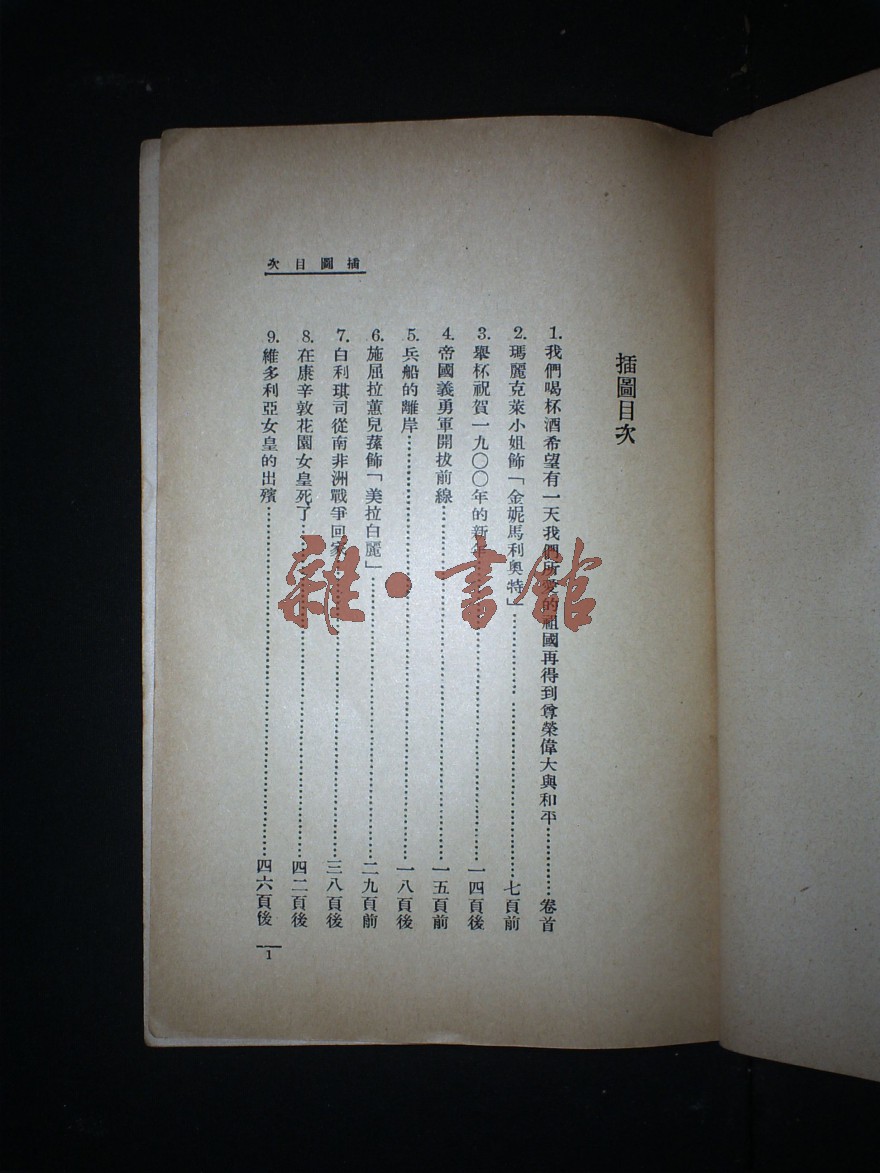 插圖目次
插圖目次
1. 我們喝杯酒希望有一天我們所愛的祖國再得到尊榮偉大與和平…………卷首
2. 瑪麗克萊小姐飾「金妮馬利奧特」…………七頁前
3. 舉杯祝賀一九〇〇年的新年…………一四頁後
4. 帝國義勇軍開拔前線…………一五頁前
5. 兵船的離岸…………一八頁後
6. 施屈拉薰兒蓀飾「美拉白麗」…………二九頁前
7. 白利琪司從南非洲戰爭回家…………三八頁後
8. 在康辛敦花園女皇死了…………四二頁後
9. 維多利亞女皇的出殯…………四六頁後
1
雜·書館